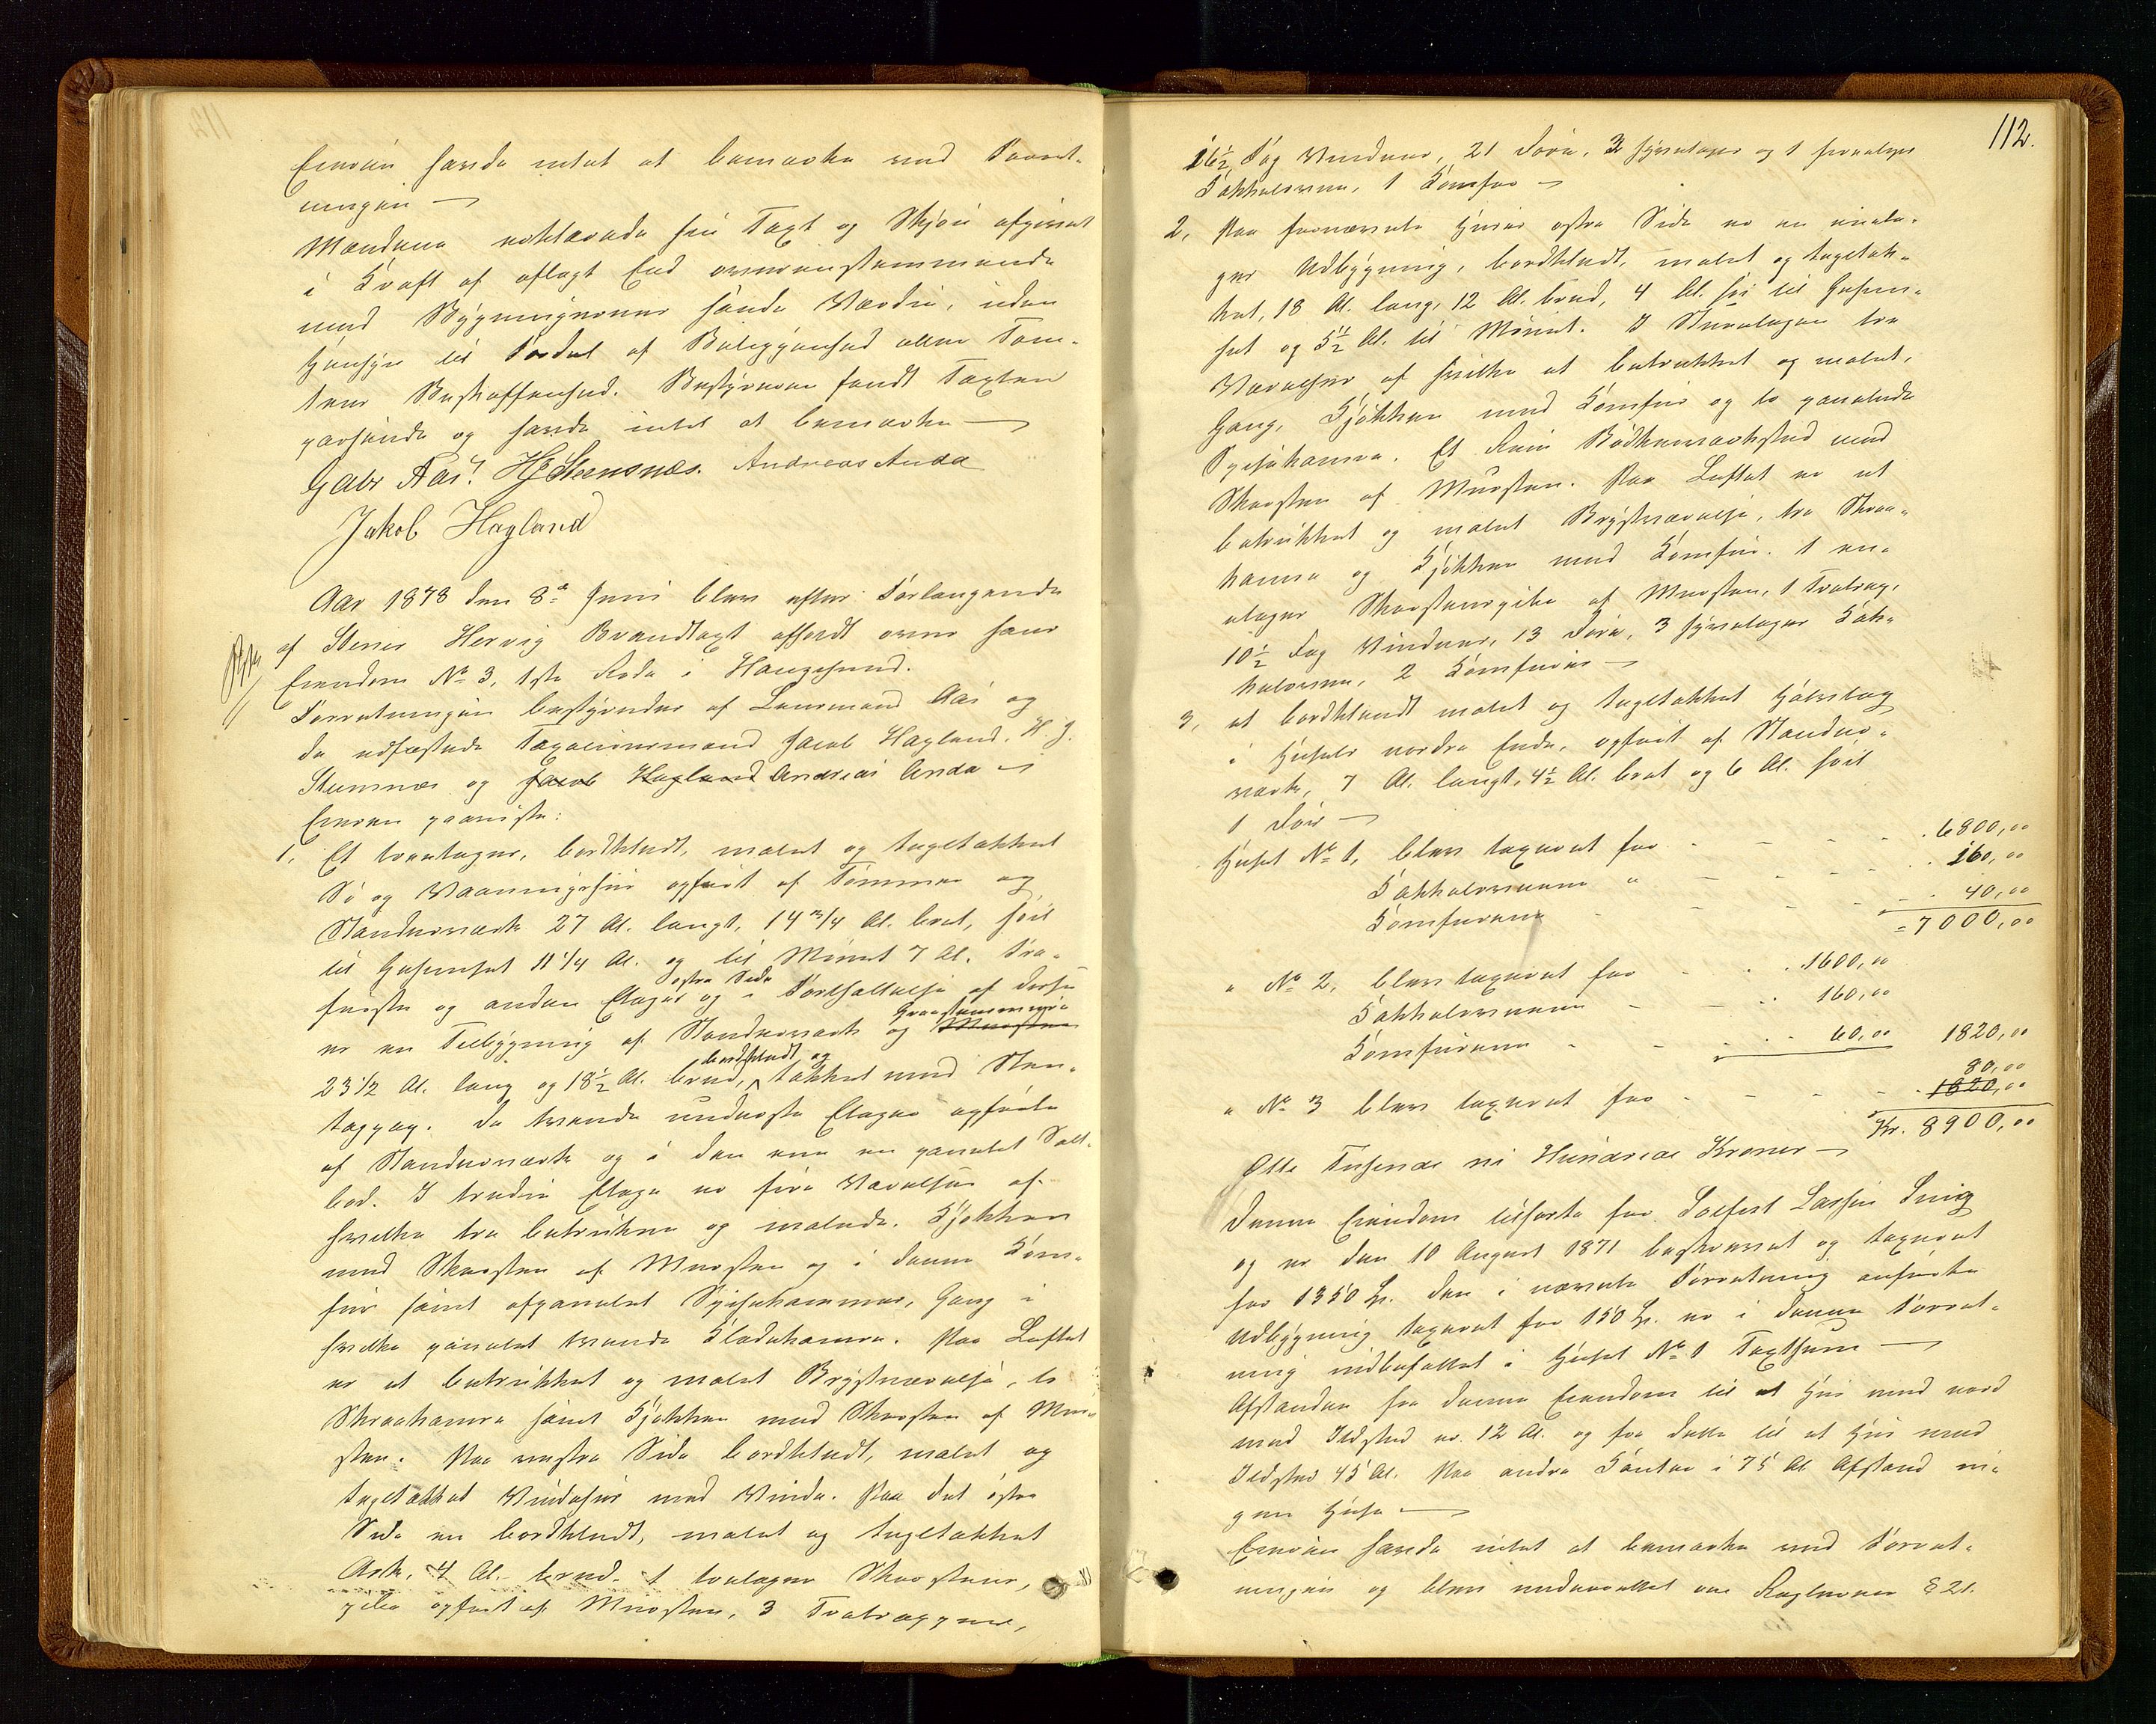 Eieren havde intet at bemærke ved Forret-
ningen —
Mændene erklærede sin Taxt og Skjøn afgivet
i Kraft af aflagt Eed overensstemmende
med Bygningernes sande Værdie, uden
Hensyn til Fordel af Beliggenhed eller Tom-
tens Beskaffenhed. Bestyreren fandt Taxten
passende og havde intet at bemærke —
Gabr Aas. H J Steensnæs. Andreas Anda
Jakob Hagland
Aar 1878 den 8de Juni blev efter Forlangende
af Stener Hervig Brandtaxt afholdt over hans
Eiendom No 3, 1ste Rode i Haugesund.
Forretningen bestyredes af Lensmand Aas og
de udfæstede Taxationsmænd Jacob Hagland, H. J.
Steensnæs og Jacob Hagland Andreas Anda —
Eieren paaviste:
1, Et toetages, bordklædt, malet og tagteltækket
Sø og Vaaningshus opført af Tømmer og
Standerværk 27 Al. langt, 14 3/4 Al. bret, høit
til Gesimset 11 1/4 Al. og til Mønet 7 Al. Fra
første og anden Etages østre Side og i Fortsættelse af disse
er en Tilbygning af Standerværk og Mursten Graastensmur
23 1/2 Al. lang og 18 1/2 Al. bred, bordklædt og tækket med Sten-
tag. De tvende underste Etager opført
af Standerværk og i den ene en panelet Salt-
bod. I tredie Etage er fire Værelser af
hvilke tre betrukne og malede. Kjøkken
med Skorsten af Mursten og i denne Kom-
fur samt afpanelet Spisekammer, Gang i
hvilke panelet tvende Klædekamre. Paa Loftet
er et betrukket og malet Brystværelse, to
Skraakamre samt Kjøkken med Skorsten af Mur-
sten. Paa vestre Side bordklædt, malet og
tagteltækket Vindehus med Vinde. Paa det østre
Side en bordklædt, malet og tagteltækket
Ark, 4 Al. bred. 1 toetages Skorstens-
pibe opført af Mursten, 3 Trætrapper,
112.
16 1/2 Fag Vinduer, 21 Døre, 3 fyretages og 1 treetages
Kakkelovne, 1 Komfur —
2, Paa fornævnte Huses østre Side er en eneta-
ges Udbygning, bordklædt, malet og tagteltæk-
ket, 18 Al. lang, 12 Al. bred, 4 Al. høi til Gesim-
set og 5 1/2 Al. til Mønet. I Stueetagen tre
Værelser af hvilke et betrukket og malet,
Gang, Kjøkken med Komfur og to panelede
Spisekamre. Et Rum Bødkerværksted med
Skorsten af Mursten. Paa Loftet er et
betrukket og malet Brystværelse, tre Skraa-
kamre og Kjøkken med Komfur. 1 en-
etages Skorstenspibe af Mursten, 1 Trætrap,
10 1/2 Fag Vinduer, 13 Døre, 3 fyretages Kak-
kelovne, 2 Komfurer —
3, et bordklædt malet og tagteltækket Halvtag
i Husets nordre Ende, opført af Stander-
værk, 7 Al. langt, 4 1/2 Al. bret og 6 Al. høit
1 Dør —
Huset No 1, blev taxeret for - - - 6800,00
Kakkelovnene " - - - 160,00
Komfuren - - - 40,00
= 7000,00
" No 2, blev taxeret for - - 1600,00
Kakkelovnene - - 160,00
Komfurene - - 60,00 1820,00
80,00
" No 3 blev taxeret for - - - 1820,00
Kr. 8900,00
Otte Tusende ni Hundrede Kroner —
Denne Eiendom tilhørte før Tolfest Larsen
og er den 10 August 1871 beskrevet og taxeret
for 1350 Sp. Den i nævnte Forretning anførte
Udbygning taxeret for 150 Sp. er i denne Forret-
ning indbefattet i Huset No 1 Taxtsum —
Afstanden fra denne Eiendom til et Hus mod nord
med Ildsted er 12 Al. og fra dette til et Hus med
Ildsted 45 Al. Paa andre Kanter i 75 Al. Afstand in-
gen Huse —
Eieren havde intet at bemærke ved Forret-
ningen og blev underrettet om Reglernes § 21.